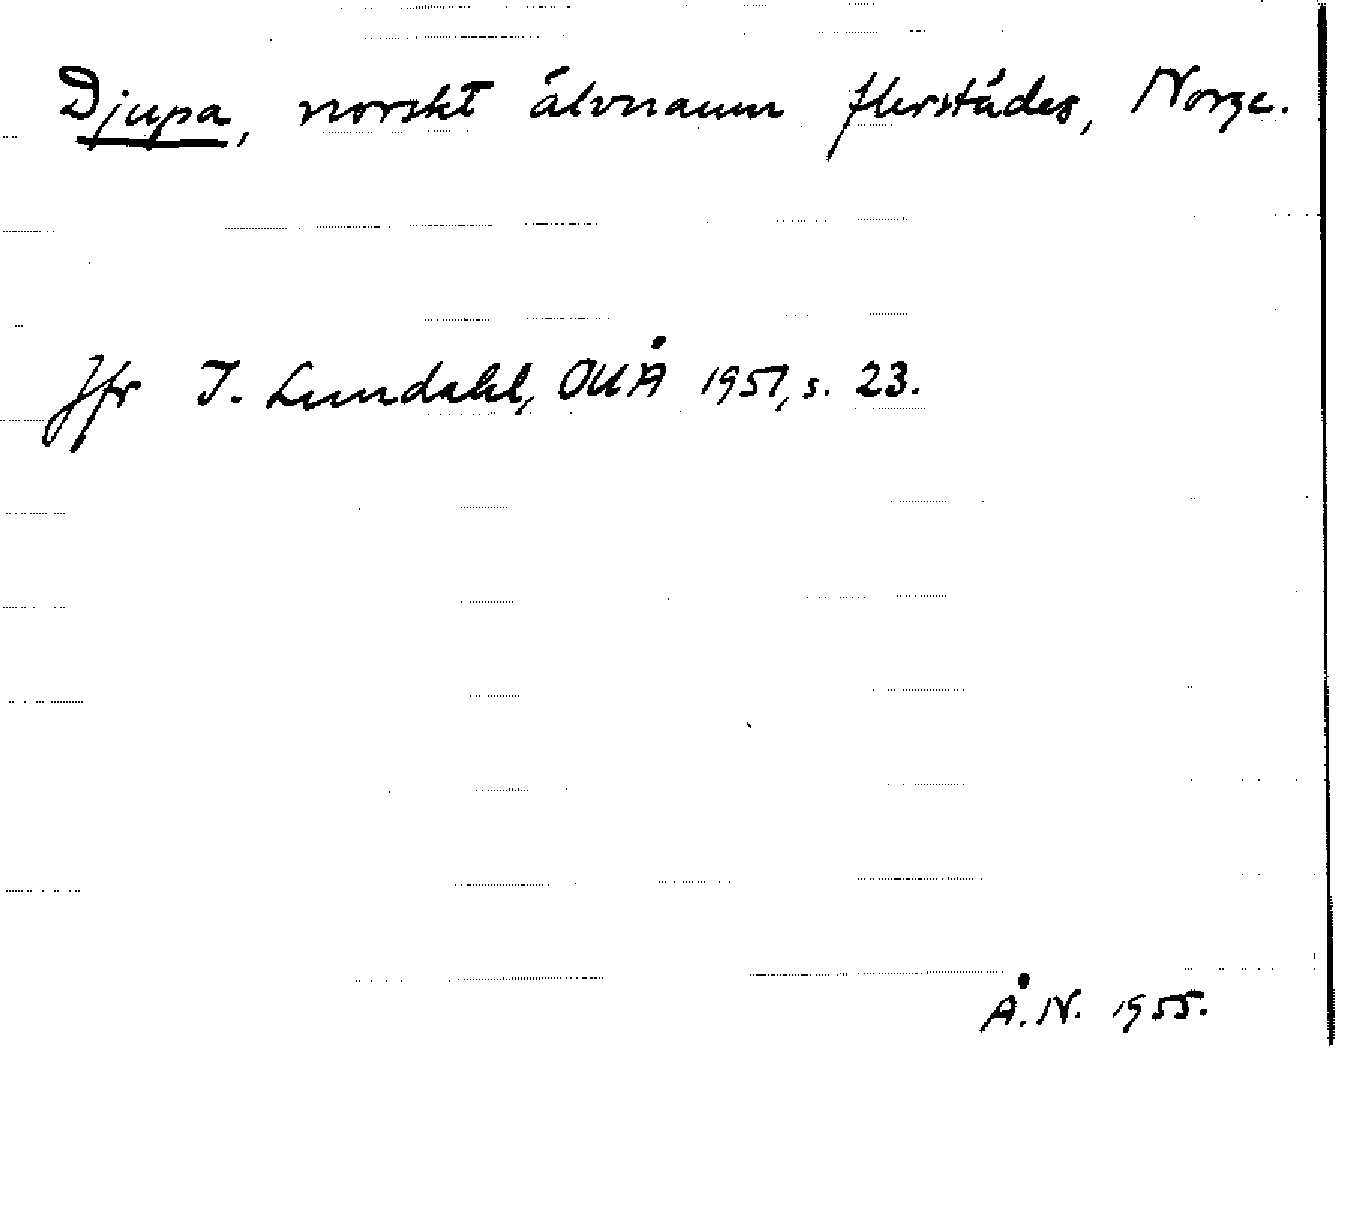 Djupa, norskt älvnamn flerstädes, Norge.
Jfr I. Lundahl, OUÅ 1951, s. 23.
Å. N. 1955.